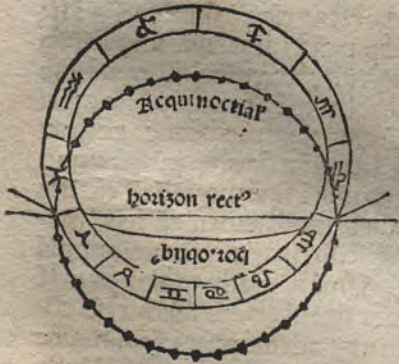 Aequinoctialꝭ
horizon rectꝰ
hor. obliqꝰ